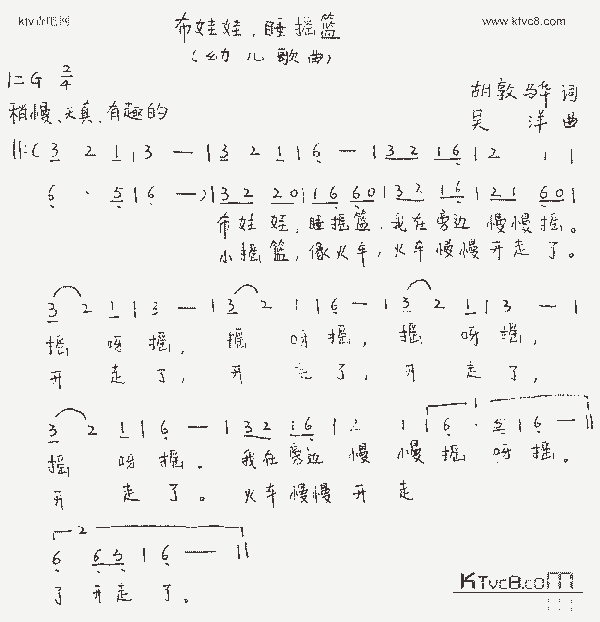 www.ktvc8.com
布娃娃,睡摇篮
(幼儿歌曲)
1=G 2/4
胡敦骅 词
稍慢、天真、有趣的
吴 洋 曲
‖:( 3 2 1 | 3 — | 3 2 1 | 6 — | 3 2 1 6 | 2 1 |
6 · 5 | 6 — ) | 3 2 2 0 | 1 6 6 0 | 3 2 1 6 | 2 1 6 0 |
布娃娃,睡摇篮,我在旁边慢慢摇。
小摇篮,像火车,火车慢慢开走了。
3 2 1 | 3 — | 3 2 1 | 6 — | 3 2 1 | 3 — |
摇 呀摇, 摇 呀摇, 摇 呀摇,
开 走了, 开 走了, 开 走了,
3 2 1 | 6 — | 3 2 1 6 | 2 1 | 1 6 · 5 | 6 — ‖
摇 呀摇。 我在旁边 慢 慢摇 呀摇。
开 走了。 火车慢慢 开 走
2
6 6 5 | 6 — ‖
了 开走了。
KTvc8.com